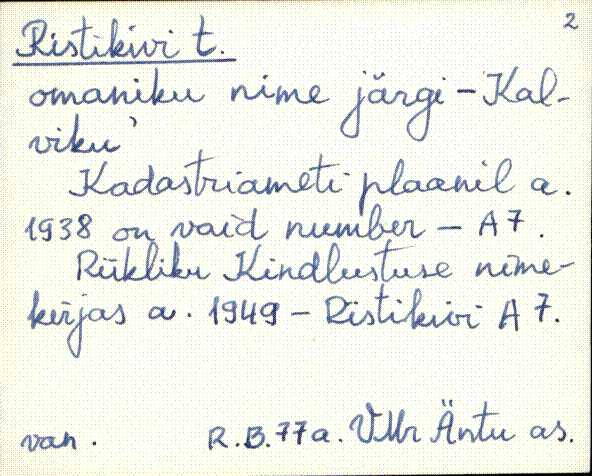 2
Ristikivi t.
omaniku nime järgi - Kal-
viku'
Kadastriameti plaanil a.
1938 on vaid number - A 7.
Riikliku Kindlustuse nime-
kirjas a. 1949 - Ristikivi A 7.
van. R.B. 77a. VMr Äntu as.